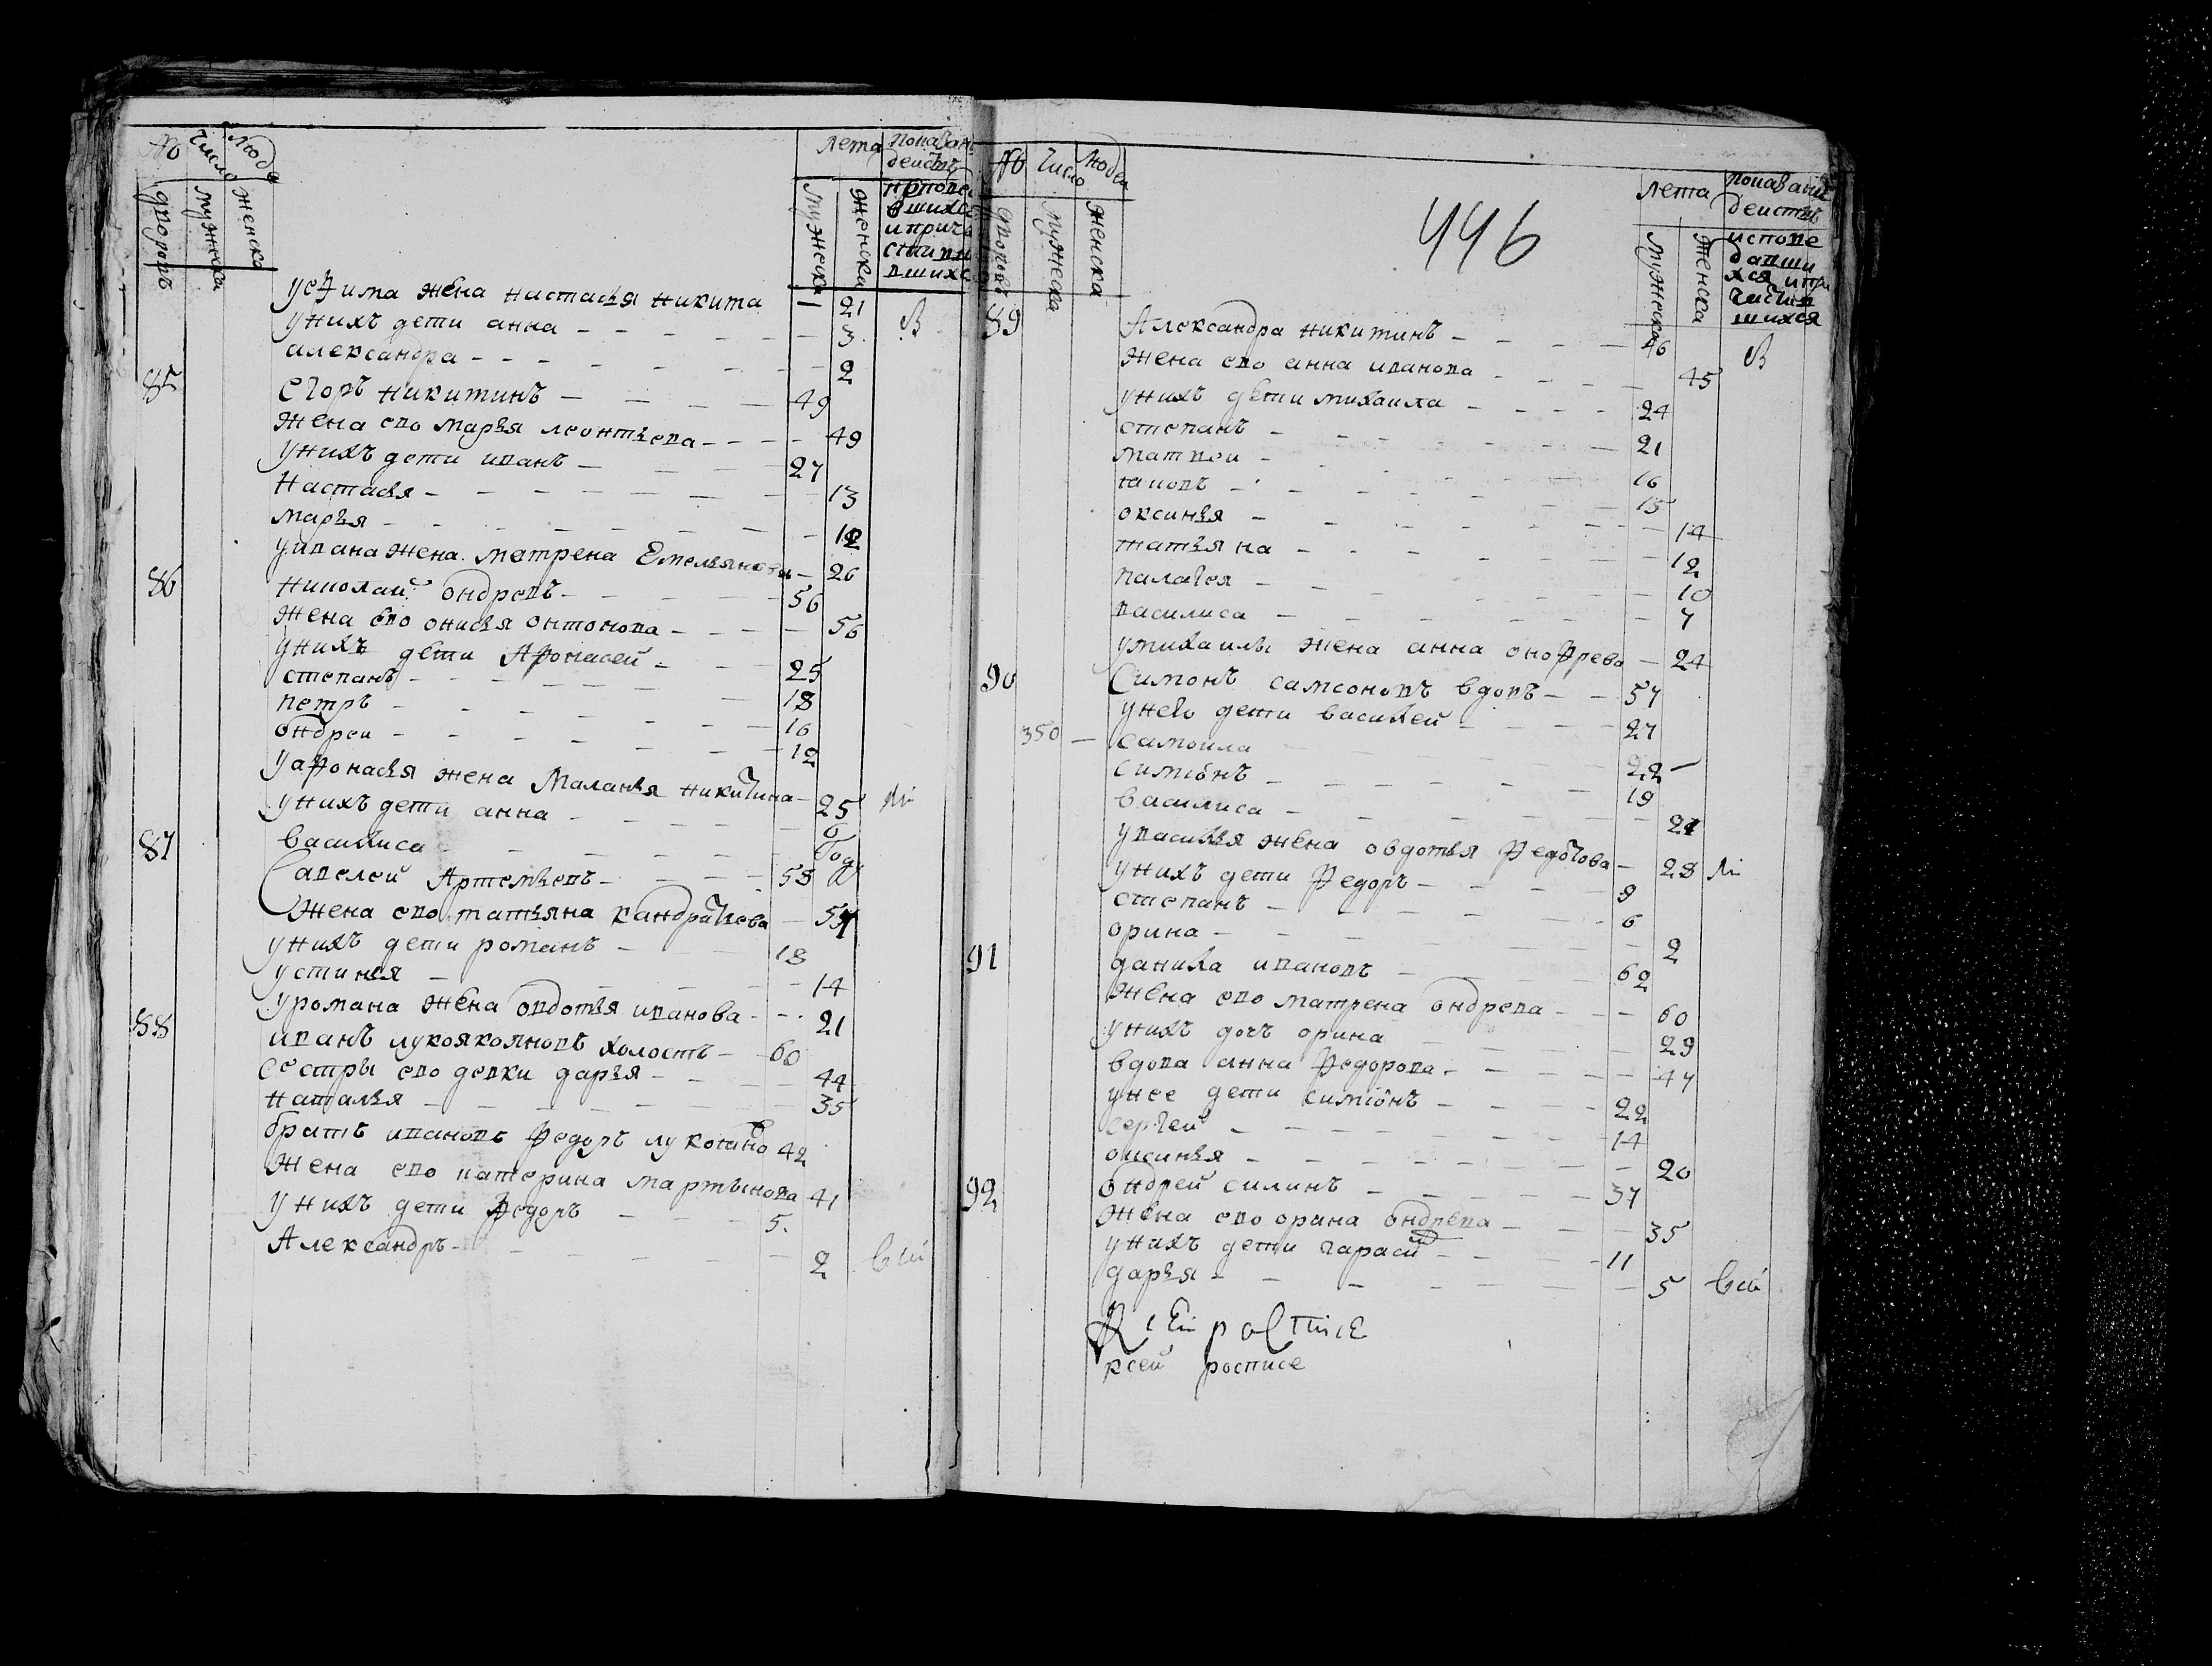 № Число людей
дворовъ мужеска женска
лета
мужеска женска
уефима жена настасья никита 21 В
унихъ дети анна 3
александра 2
85 Егоръ никитинъ 49
жена ево марья леонтьева 49
унихъ дети иванъ 27
настасья 13
марья 12
уивана жена матрена Емельянова 26
86 николай ондревъ 56
жена ево онисья онтонова 56
унихъ дети Афонасей 25
степанъ 18
петръ 16
ондреи 12
уафонасья жена Маланья никитина 25 ли
унихъ дети анна 6
василиса году
87 Савелей Артемьевъ 58
жена ево татьяна кандратьева 57
унихъ дети романъ 18
устинья 14
уромана жена овдотья иванова 21
88 иванъ холостъ 60
сестры ево девки дарья 44
наталья 35
братъ ивановъ федоръ 42
жена ево катерина мартынова 41
унихъ дети федоръ 5.
Александръ 2
№ Число людей
дворовъ мужеска женска
446
лета показание
действ
мужеска женска
испове
давши
хся и при
частив
шихся
89 Александра никитинъ 46 В
жена ево анна иванова 45
унихъ дети михаила 24
степанъ 21
матвеи 16
иаковъ 15
оксинья 14
татьяна 12
палагея 10
василиса 7
умихаилы жена анна онофрева 24
90 Симонъ самсоновъ вдовъ 57
унего дети василей 27
350 самоила 22
симионъ 19
василиса 21
увасилья жена овдотья федотова 28 ли
унихъ дети федоръ 9
степанъ 6
орина 2
91 данила ивановъ 62
жена ево матрена ондрева 60
унихъ дочъ орина 29
вдова анна федорова 47
унее дети симионъ 22
сергей 14
оксинья 20
92 ондрей силинъ 37
жена ево орина ондрева 35
унихъ дети гараси 11
дарья 5
ксей росписе